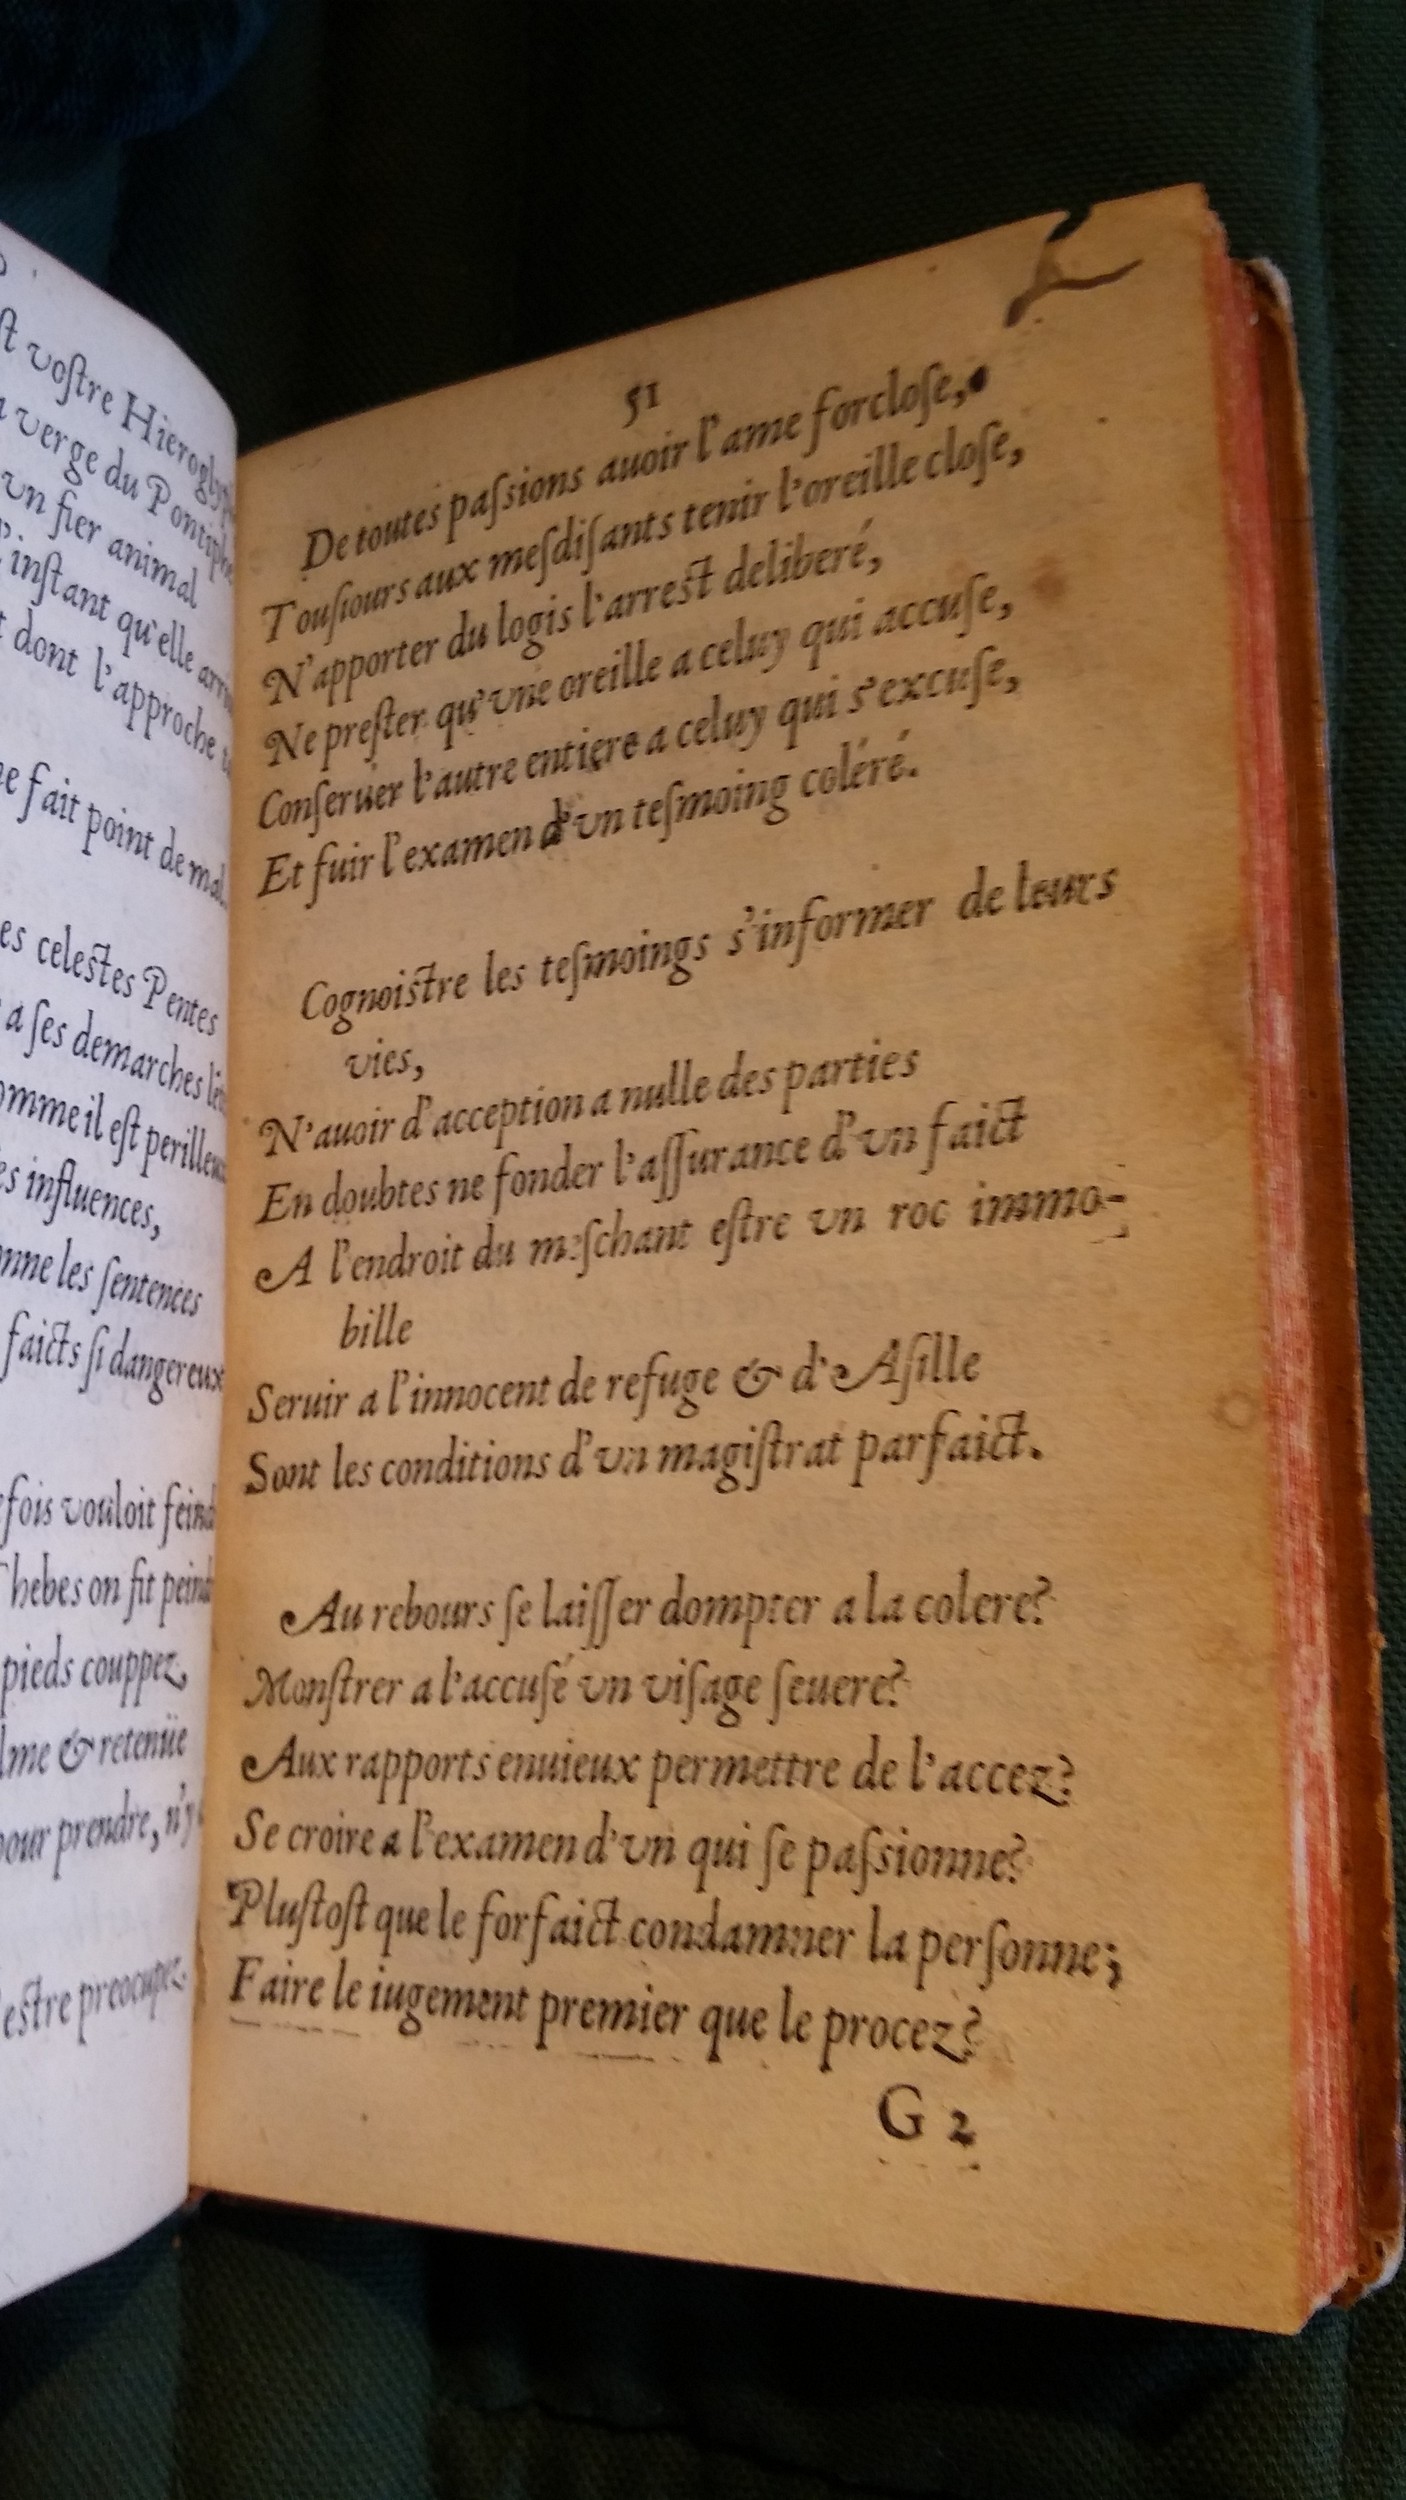 st vostre Hierogly
verge du Pontiphe
vn fier animal
l'instant qu'elle arriu
t dont l'approche
e fait point de mal.
es celestes Pentes
a ses demarches
omme il est perilleux
es influences,
onne les sentences
faicts si dangereux
efois vouloit feind
Thebes on fit peind
pieds couppez,
lme & retenüe
pour prendre, n'y
estre preocupez.
51
De toutes paſsions auoir l'ame forcloſe,
Touſiours aux meſdiſants tenir l'oreille cloſe,
N'apporter du logis l'arreſt deliberé,
Ne preſter qu'vne oreille a celuy qui accuſe,
Conſeruer l'autre entiere a celuy qui s'excuſe,
Et fuir l'examen d'vn teſmoing coléré.
Cognoiſtre les teſmoings s'informer de leurs
vies,
N'auoir d'acception a nulle des parties
En doubtes ne fonder l'aſſurance d'vn faict
A l'endroit du meſchant eſtre vn roc immo-
bille
Seruir a l'innocent de refuge & d'Aſille
Sont les conditions d'vn magiſtrat parfaict.
Au rebours ſe laiſſer dompter a la colere?
Monſtrer a l'accuſé vn viſage ſeuere?
Aux rapports enuieux permettre de l'accez?
Se croire a l'examen d'vn qui ſe paſsionne?
Pluſtoſt que le forfaict condamner la perſonne;
Faire le iugement premier que le procez?
G 2